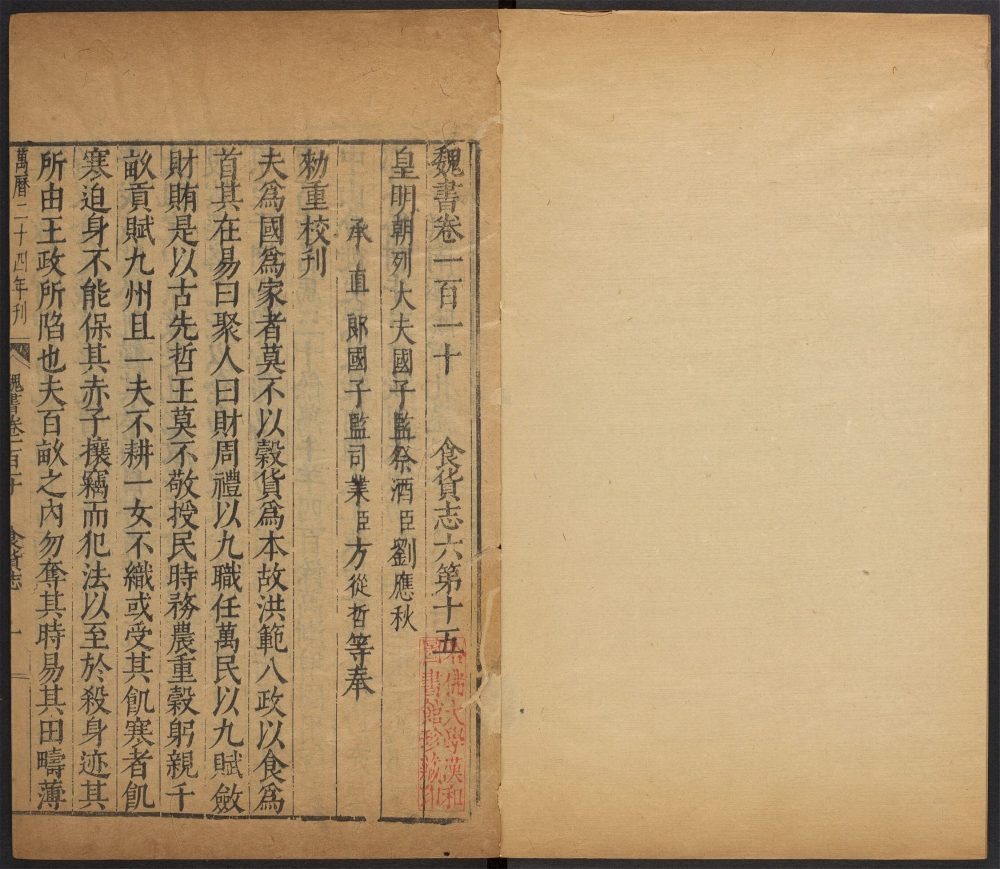 魏書卷一百一十　食貨志六第十五
皇明朝列大夫國子監祭酒臣劉應秋
承直郎國子監司業臣方從哲等奉
勑重校刊
夫爲國爲家者莫不以穀貨爲本故洪範八政以食爲
首其在易曰聚人曰財周禮以九職任萬民以九賦斂
財賄是以古先哲王莫不敬授民時務農重穀躬親千
畝貢賦九州且一夫不耕一女不織或受其飢寒者飢
寒迫身不能保其赤子攘竊而犯法以至於殺身迹其
所由王政所陷也夫百畝之內勿奪其時易其田疇薄
萬曆二十四年刊　魏書卷一百一十　食貨志　一
哈佛大學漢和
圖書館珍藏印